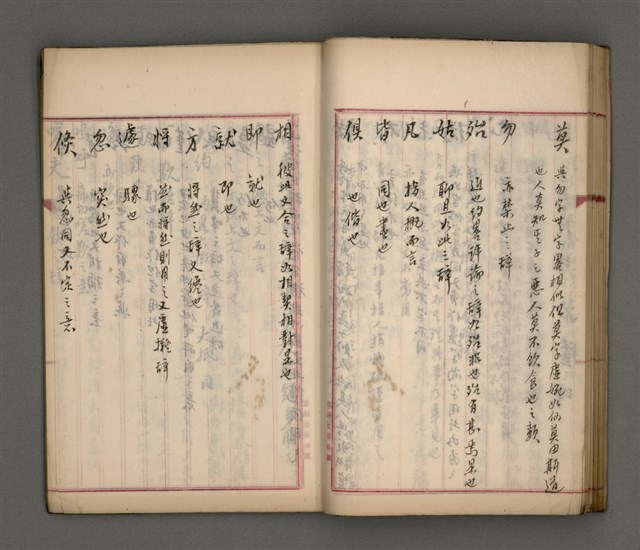 莫 與勿字世字畧相似但莫字虛婉如何莫由斯道
也人莫知其子之惡人莫不飲食也之類
勿 亦禁止之辞
殆 近也約畧評論之辞如殆非也殆有甚焉是也
姑 聊且如此之辞
凡 指人概而言
皆 同也盡也
俱 也偕也
相 彼此交合之辞如相契相對是也
即 就也
就 即也
方 將然之辞又纔也
將 然而將然則用之又虛擬辞
遽 驟也
忽 突然也
倏 與忽同又不定之意